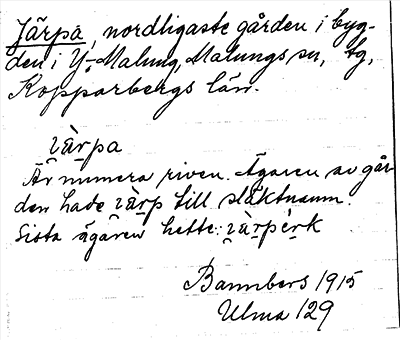 Järpa, nordligaste gården i byg-
den i Y. Malung, Malungs sn, tg,
Kopparbergs län.
i̯ä̀rpa
Är numera riven. Ägaren av går-
den hade i̯ä̀rp till släktnamn.
Sista ägaren hette: i̯ä̀rpèrk
Bannbers 1915
Ulma 129